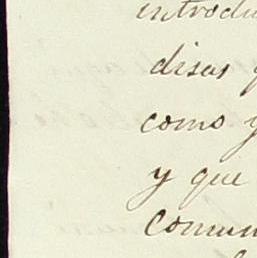 introdu
disas
como y
y que
comun